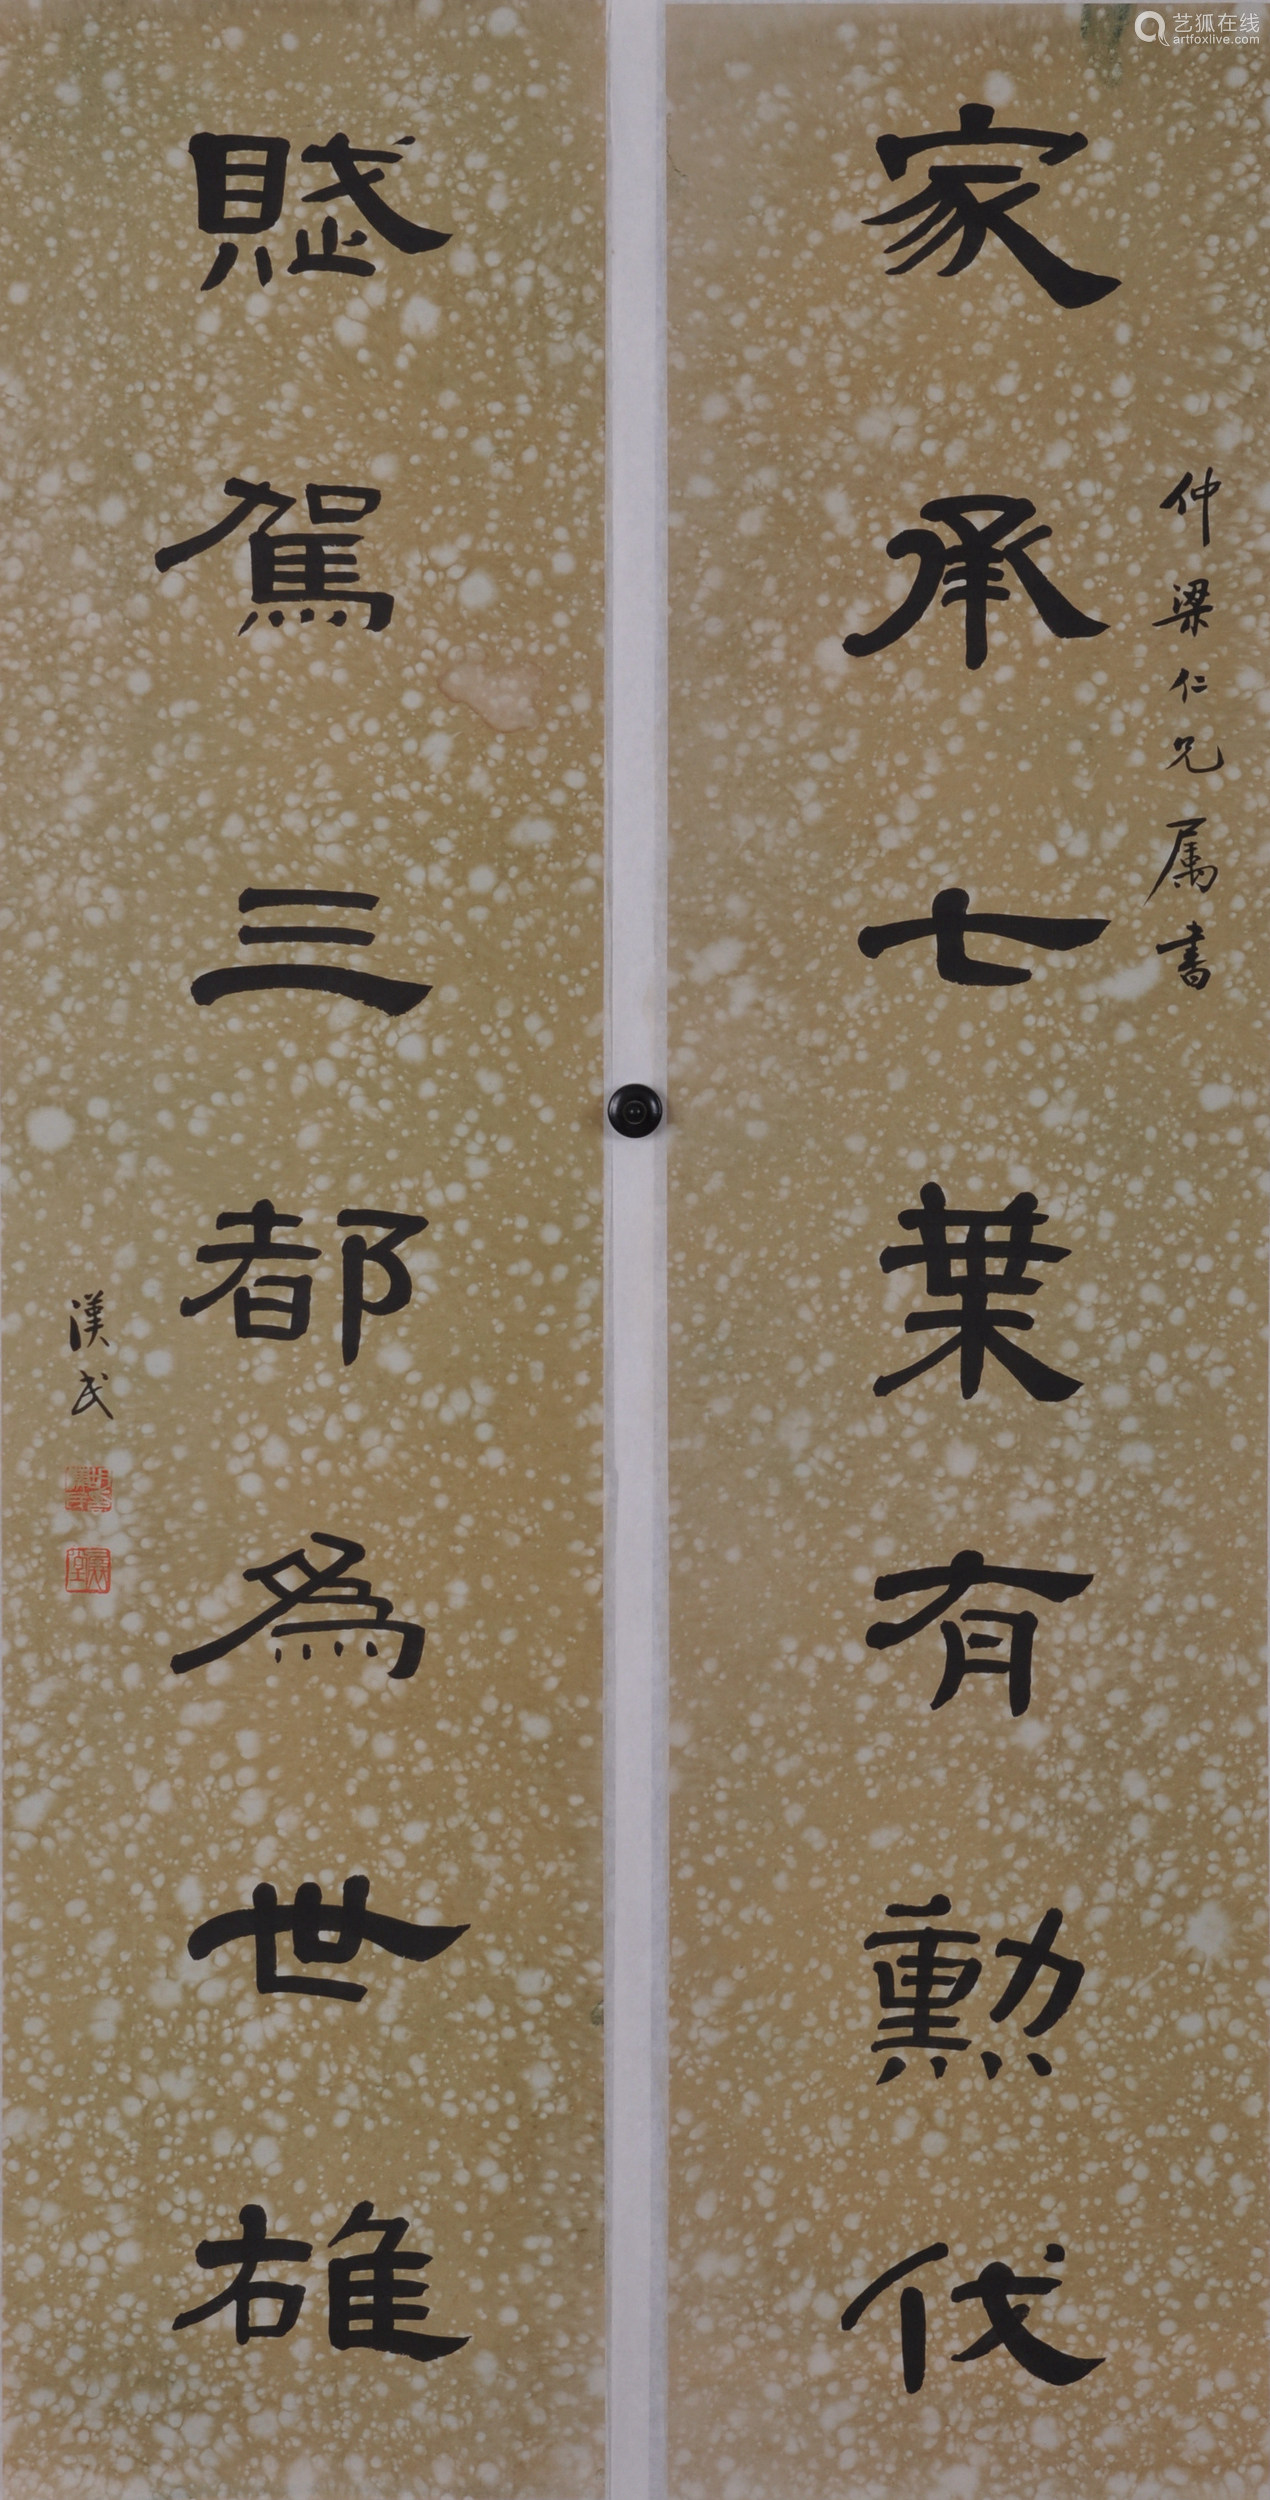 家承七葉有勳伐
仲梁仁兄属書
賦駕三都為世雄
漢民
艺狐在线
artfoxlive.com